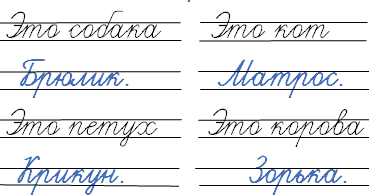 Это собака
Брюлик.
Это кот
Матрос.
Это петух
Крикун.
Это корова
Зорька.